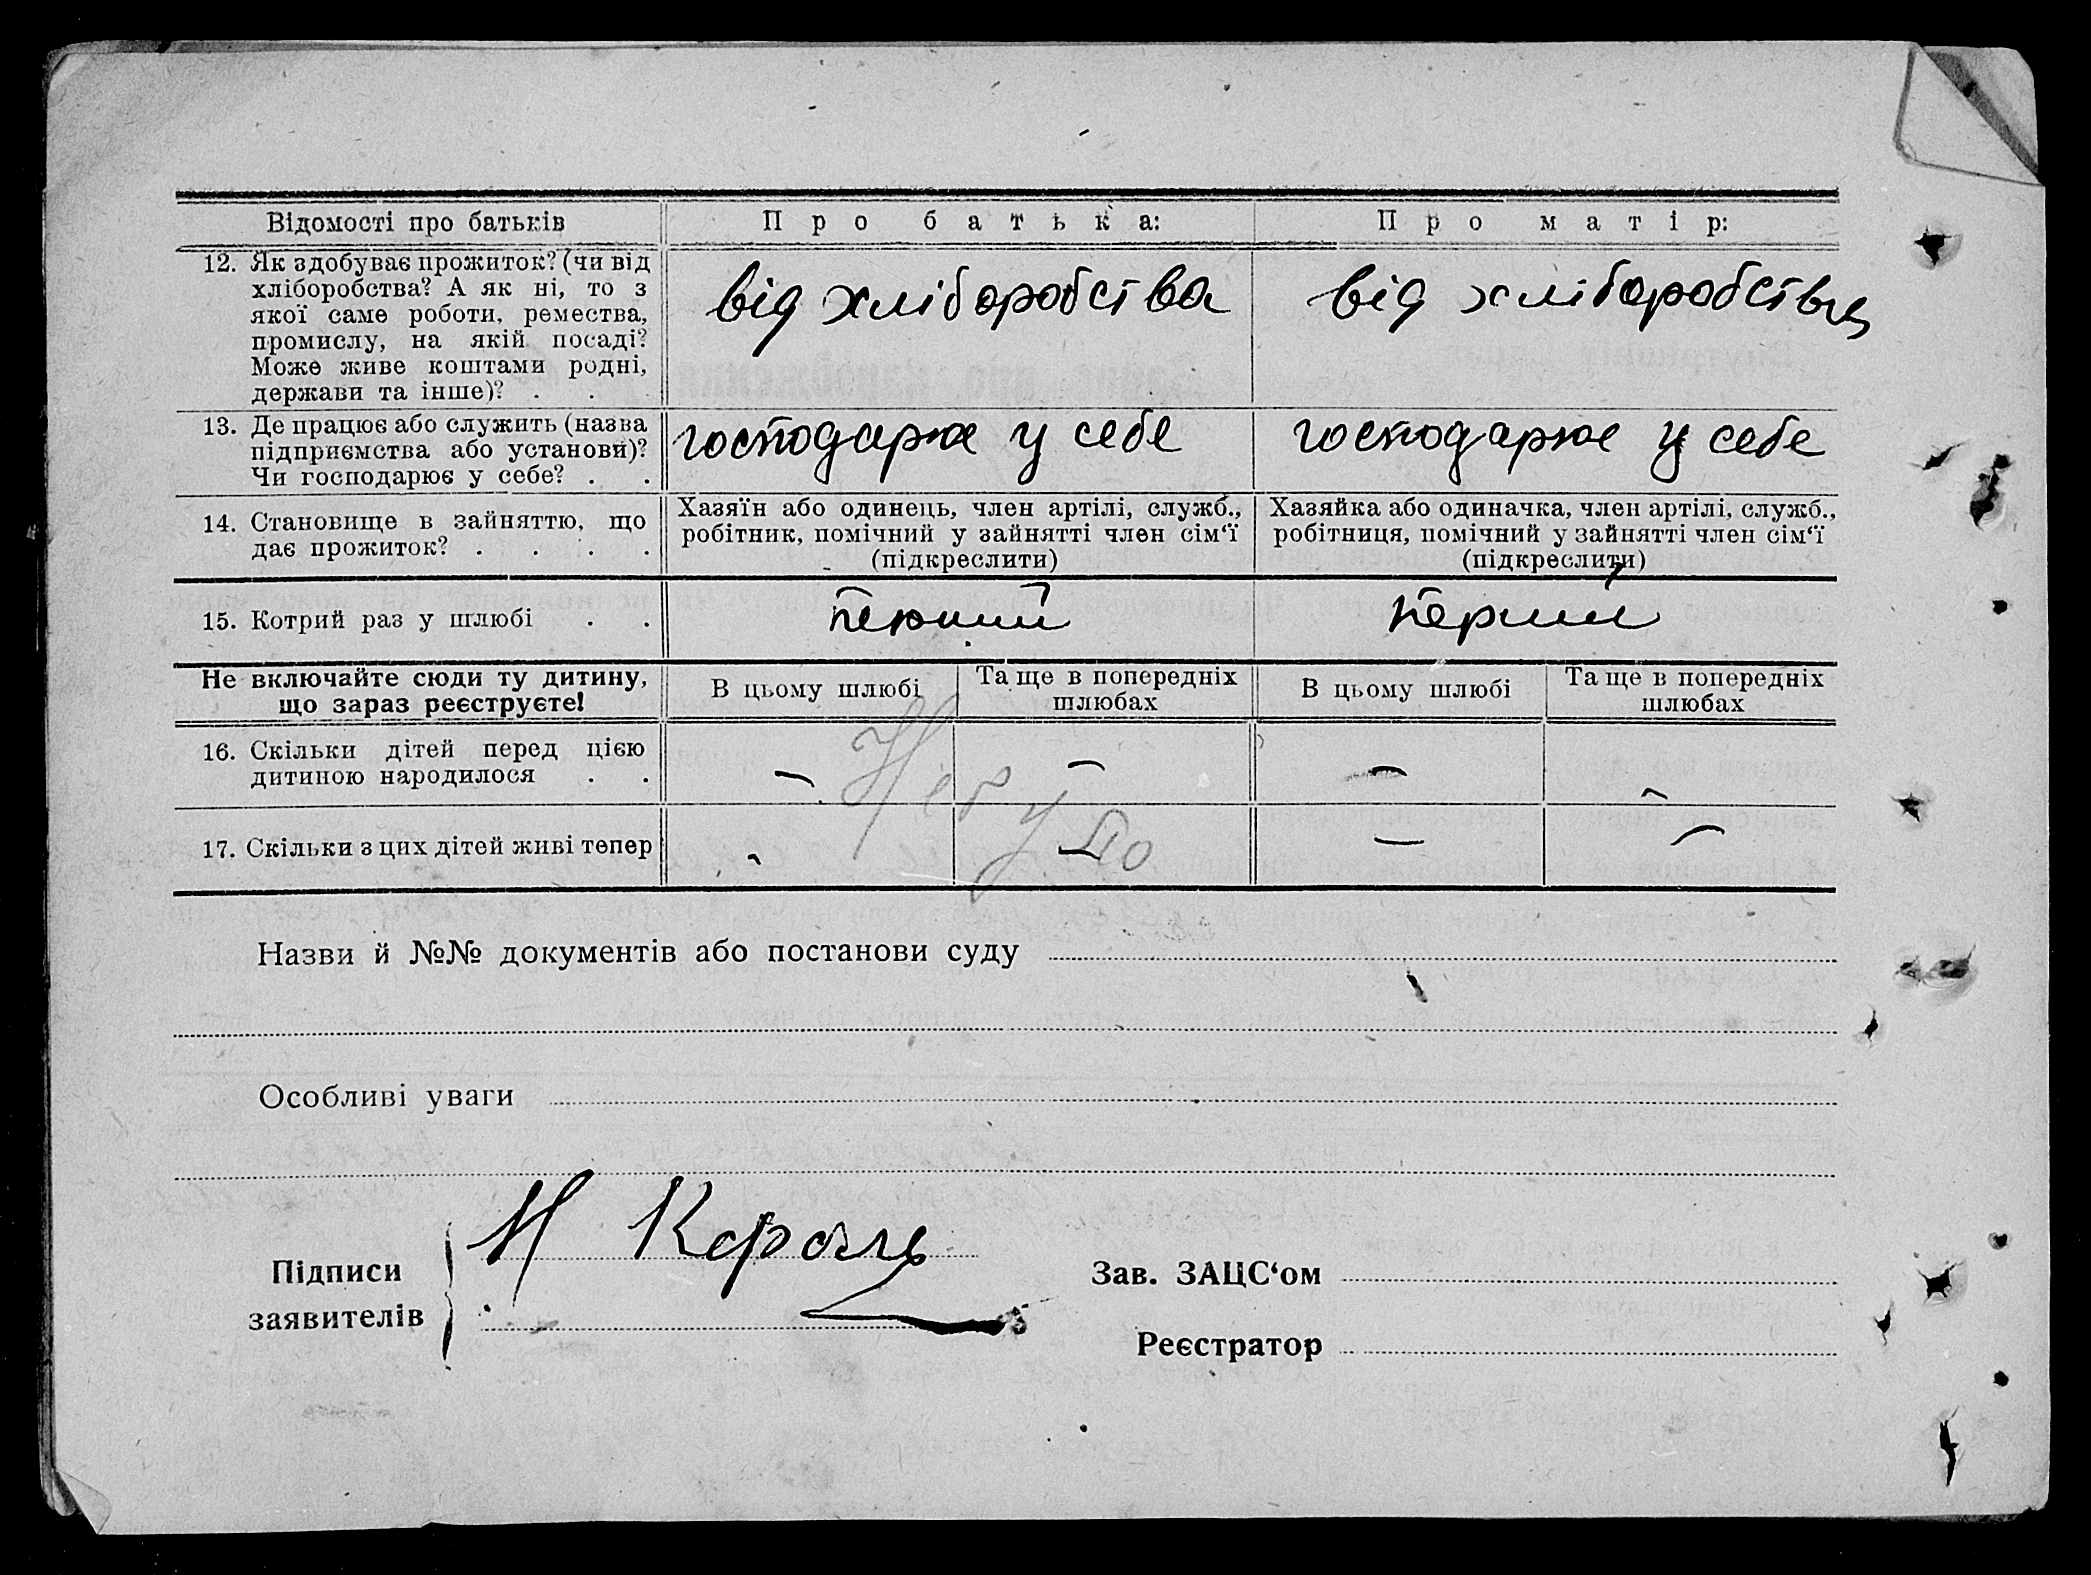 Відомості про батьків
Про батька:
Про матір:
12. Як здобуває прожиток? (чи від
хліборобства? А як ні, то з
якої саме роботи, ремества,
промислу, на якій посаді?
Може живе коштами родні,
держави та інше)? . .
від хліборобства
від хліборобства
13. Де працює або служить (назва
підприємства або установи)?
Чи господарює у себе? . .
господарює у себе
господарює у себе
14. Становище в зайняттю, що
дає прожиток? . . . .
Хазяїн або одинець, член артілі, служб.,
робітник, помічний у зайнятті член сім‘ї
(підкреслити)
Хазяйка або одиначка, член артілі, служб.,
робітниця, помічний у зайнятті член сім‘ї
(підкреслити)
15. Котрий раз у шлюбі . .
перший
перший
Не включайте сюди ту дитину,
що зараз реєструєте!
В цьому шлюбі
Та ще в попередніх
шлюбах
В цьому шлюбі
Та ще в попередніх
шлюбах
16. Скільки дітей перед цією
дитиною народилося . .
– – – –
Небуло
17. Скільки з цих дітей живі тепер
– – – –
Назви й №№ документів або постанови суду
Особливі уваги
Підписи
заявителів
Н Король
Зав. ЗАЦС‘ом
Реєстратор